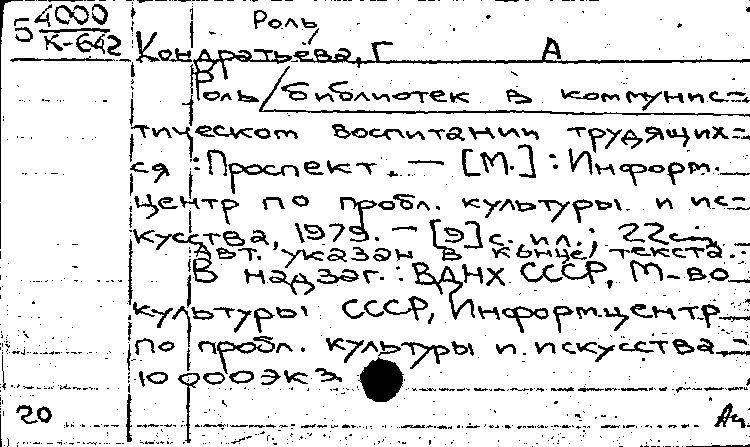 Роль
5 4000
К-642
Кондратьева, Г А
Роль/библиотек в коммунис=
тическом воспитании трудящих=
ся : Проспект. — [М.] : Информ.
центр по пробл. культуры и ис=
кусства, 1979. — [9] с. ил.; 22 см.
Авт. указан в конце текста.
В надзаг.: ВДНХ СССР, М-во
культуры СССР, Информцентр
по пробл. культуры и искусства.
10 000 экз.
20